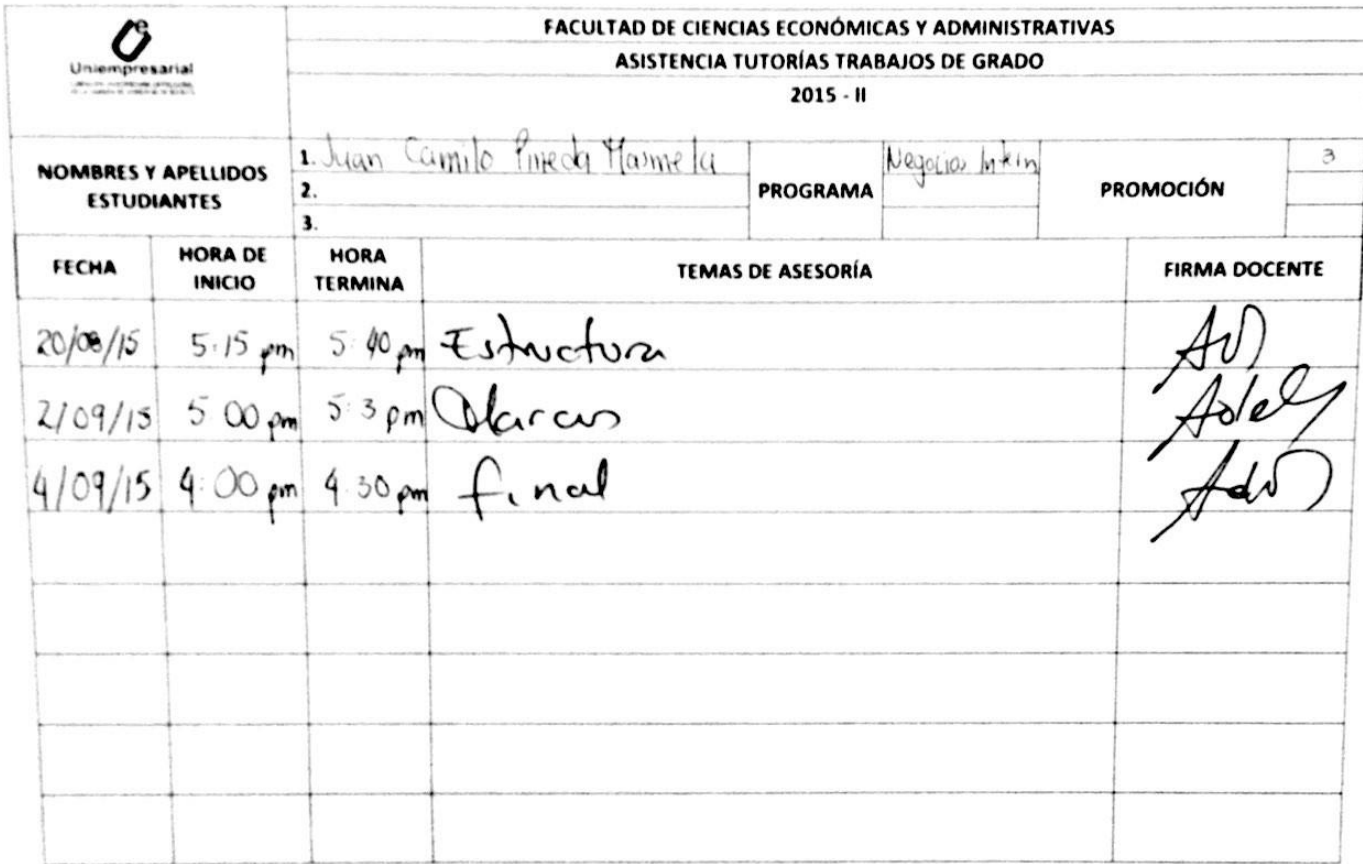 Uniempresarial
FACULTAD DE CIENCIAS ECONÓMICAS Y ADMINISTRATIVAS
ASISTENCIA TUTORÍAS TRABAJOS DE GRADO
2015 - II
NOMBRES Y APELLIDOS ESTUDIANTES
1. Juan Camilo Pineda Masmela
2.
3.
PROGRAMA
Negocios
PROMOCIÓN
3
FECHA HORA DE INICIO HORA TERMINA TEMAS DE ASESORÍA FIRMA DOCENTE
20/08/15 5:15 pm 5:40 pm Estructura
2/09/15 5:00 pm 5:3 pm Marcos
4/09/15 4:00 pm 4:30 pm final